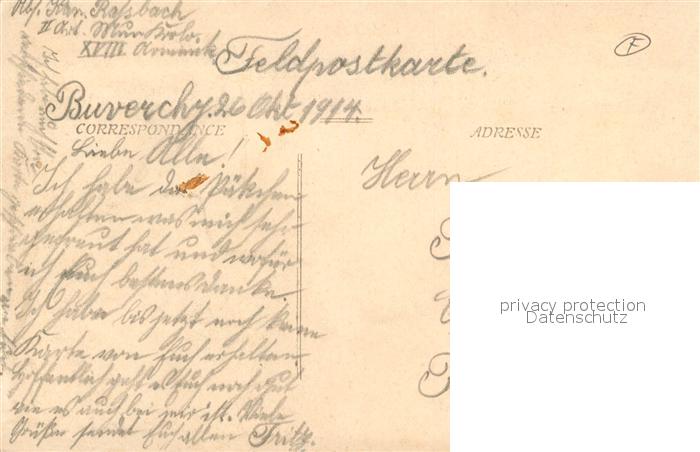 Abs. Kan. Rassbach
II Art. Mun Kolo.
XVIII Armeek.
Feldpostkarte.
Buverchy. 26 Okt 1914.
CORRESPONDANCE
ADRESSE
Liebe Alle!
Herrn
Ich habe das Päkchen
erhalten was mich sehr
gefreut hat und wofür
ich Euch bestens danke.
Ich habe bis jetzt noch keine
Karte von Euch erhalten
hoffentlich geht es Euch noch gut
wie es auch bei mir ist. Viele
Grüße sendet Euch allen Fritz.
privacy protection
Datenschutz
F